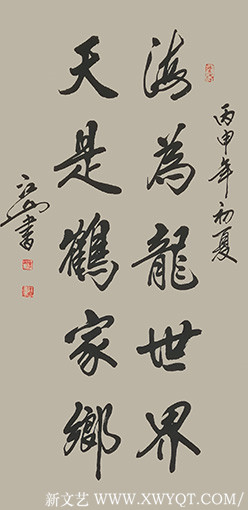 丙申年初夏
海為龍世界
天是鶴家鄉
书
新文艺 WWW.XWYQT.COM/